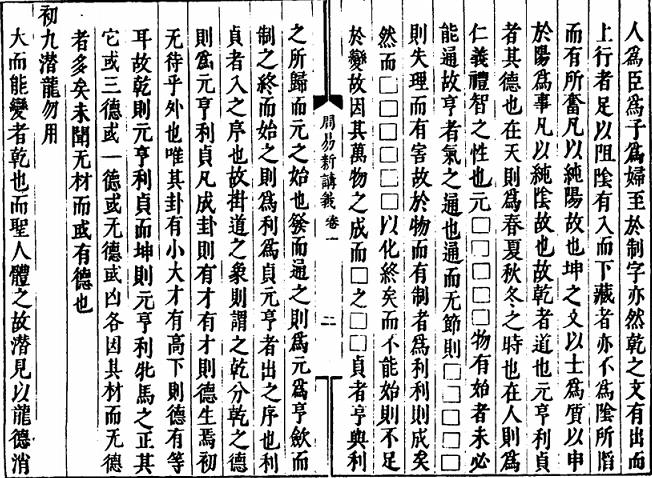 人爲臣爲子爲婦至於制字亦然乾之文有出而
上行者足以阻陰有入而下藏者亦不爲陰所𦝫
而有所奮凡以純陽故也坤之文以士爲質以申
於陽爲事凡以純陰故也故乾者道也元亨利貞
者其德也在天則爲春夏秋冬之時也在人則爲
仁義禮智之性也元□□□□物有始者未必
能通故亨者氣之通也通而无節則□□□□
則失理而有害故於物而有制者爲利利則成矣
然而□□□□□以化終矣而不能始則不足
於變故因其萬物之成而□之□□貞者亨與利
周易新講義 卷一 二
之所歸而元之始也發而通之則爲元爲亨歛而
制之終而始之則爲利爲貞元亨者出之序也利
貞者入之序也故掛道之象則謂之乾分乾之德
則爲元亨利貞凡成卦則有才有才則德生焉初
无待乎外也唯其卦有小大才有高下則德有等
耳故乾則元亨利貞而坤則元亨利牝馬之正其
它或三德或一德或无德或凶各因其材而无德
者多矣未聞无材而或有德也
初九潛龍勿用
大而能變者乾也而聖人體之故潛見以龍德消